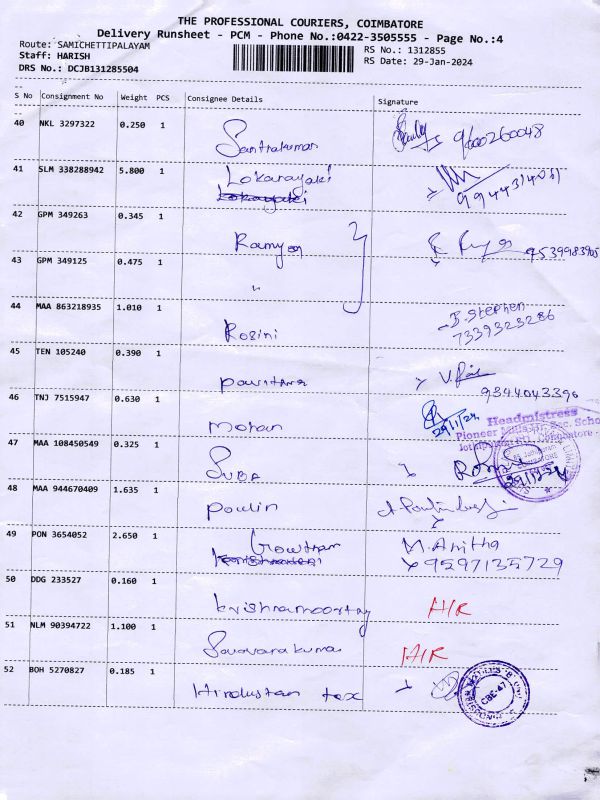 THE PROFESSIONAL COURIERS, COIMBATORE
Delivery Runsheet - PCM - Phone No.:0422-3505555 - Page No.:4
Route: SAMICHETTIPALAYAM
RS No.: 1312855
Staff: HARISH
RS Date: 29-Jan-2024
DRS No.: DCJB131285504
S No Consignment No Weight PCS Consignee Details Signature
40 NKL 3297322 0.250 1 9600260048
41 SLM 338288942 5.800 1 Lokanayaki
42 GPM 349263 0.345 1 Ramya 9539983905
43 GPM 349125 0.475 1 "
44 MAA 863218935 1.010 1 Rosini J. Stephen
7339323286
45 TEN 105240 0.390 1 Pavithra
9344043396
46 TNJ 7515947 0.630 1 Mohan 29/1/24
Headmistress
47 MAA 108450549 0.325 1 SUBA
48 MAA 944670409 1.635 1 Poulin
49 PON 3654052 2.650 1 Gowtham M. Anitha
9597135729
50 DDG 233527 0.160 1 krishnamoortay A/R
51 NLM 90394722 1.100 1 Saravanakumar A/R
52 BOH 5270827 0.185 1 Hindustan tex
CBE-47